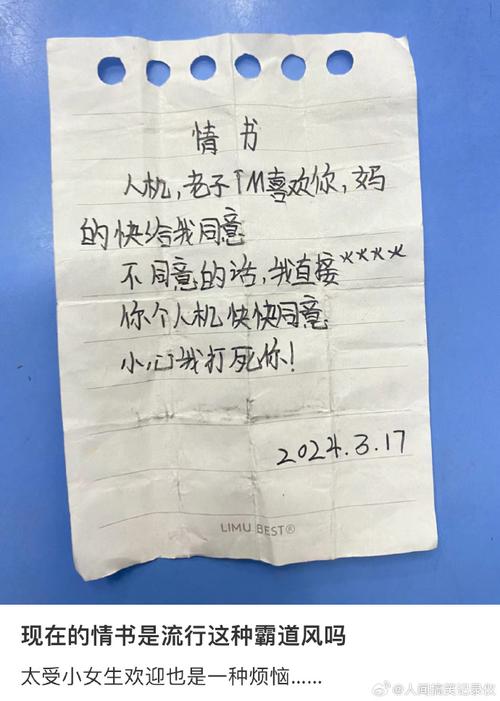 情书
人机,老子TM喜欢你,妈
的快给我同意
不同意的话,我直接****
你个人机快快同意
小心我打死你!
2024.3.17
LIMU BEST®
现在的情书是流行这种霸道风吗
太受小女生欢迎也是一种烦恼......
@人间搞笑记录伙